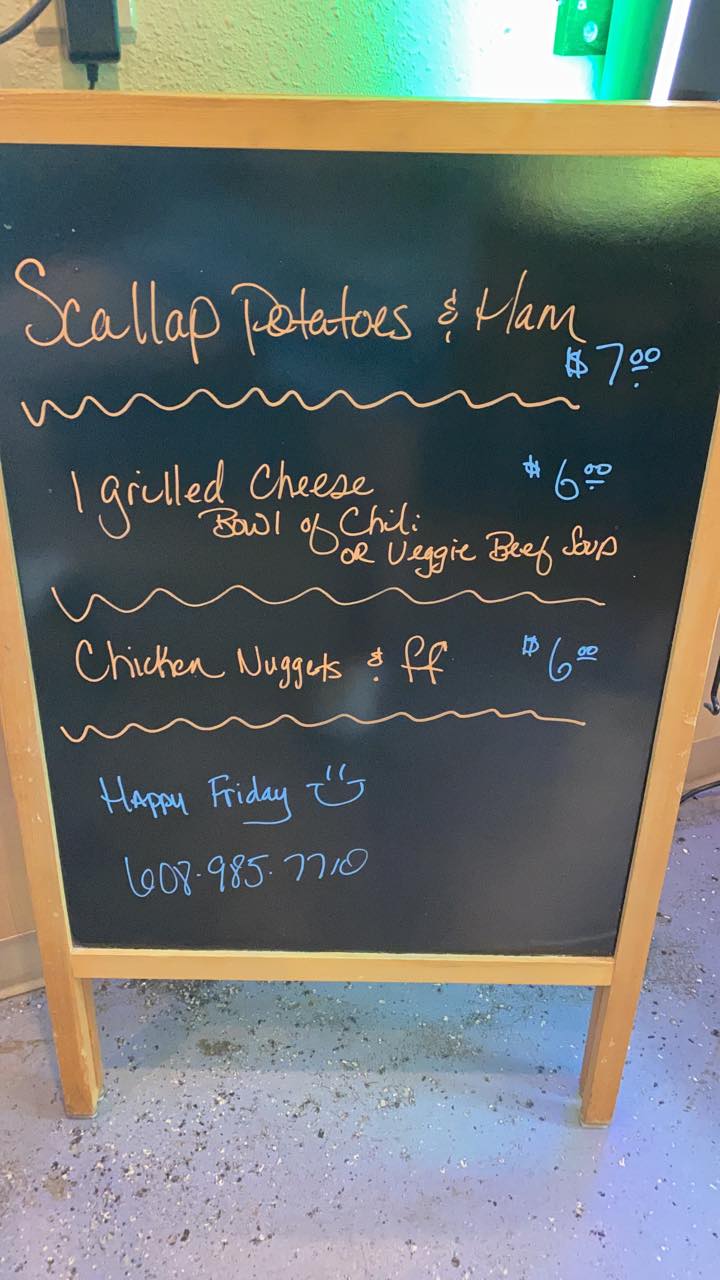 Scallap Potatoes & Ham
$7.00
1 grilled Cheese $6.00
Bowl of Chili
OR Veggie Beef Soup
Chicken Nuggets & ff $6.00
Happy Friday
608.985.7710